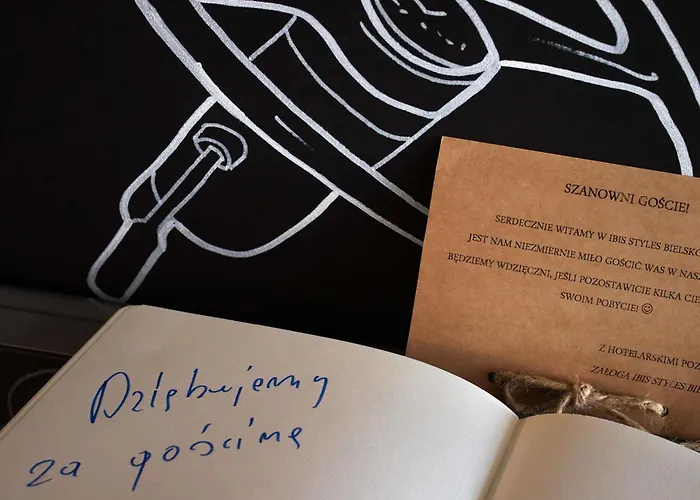 SZANOWNI GOŚCIE!
SERDECZNIE WITAMY W IBIS STYLES
JEST NAM NIEZMIERNIE MIŁO GOŚCIĆ WAS W
BĘDZIEMY WDZIĘCZNI, JEŚLI POZOSTAWICIE KILKA
SWOIM POBYCIE! ☺
Z HOTELARSKIMI
ZAŁOGA IBIS STYLES
Dziękujemy
za gościnę